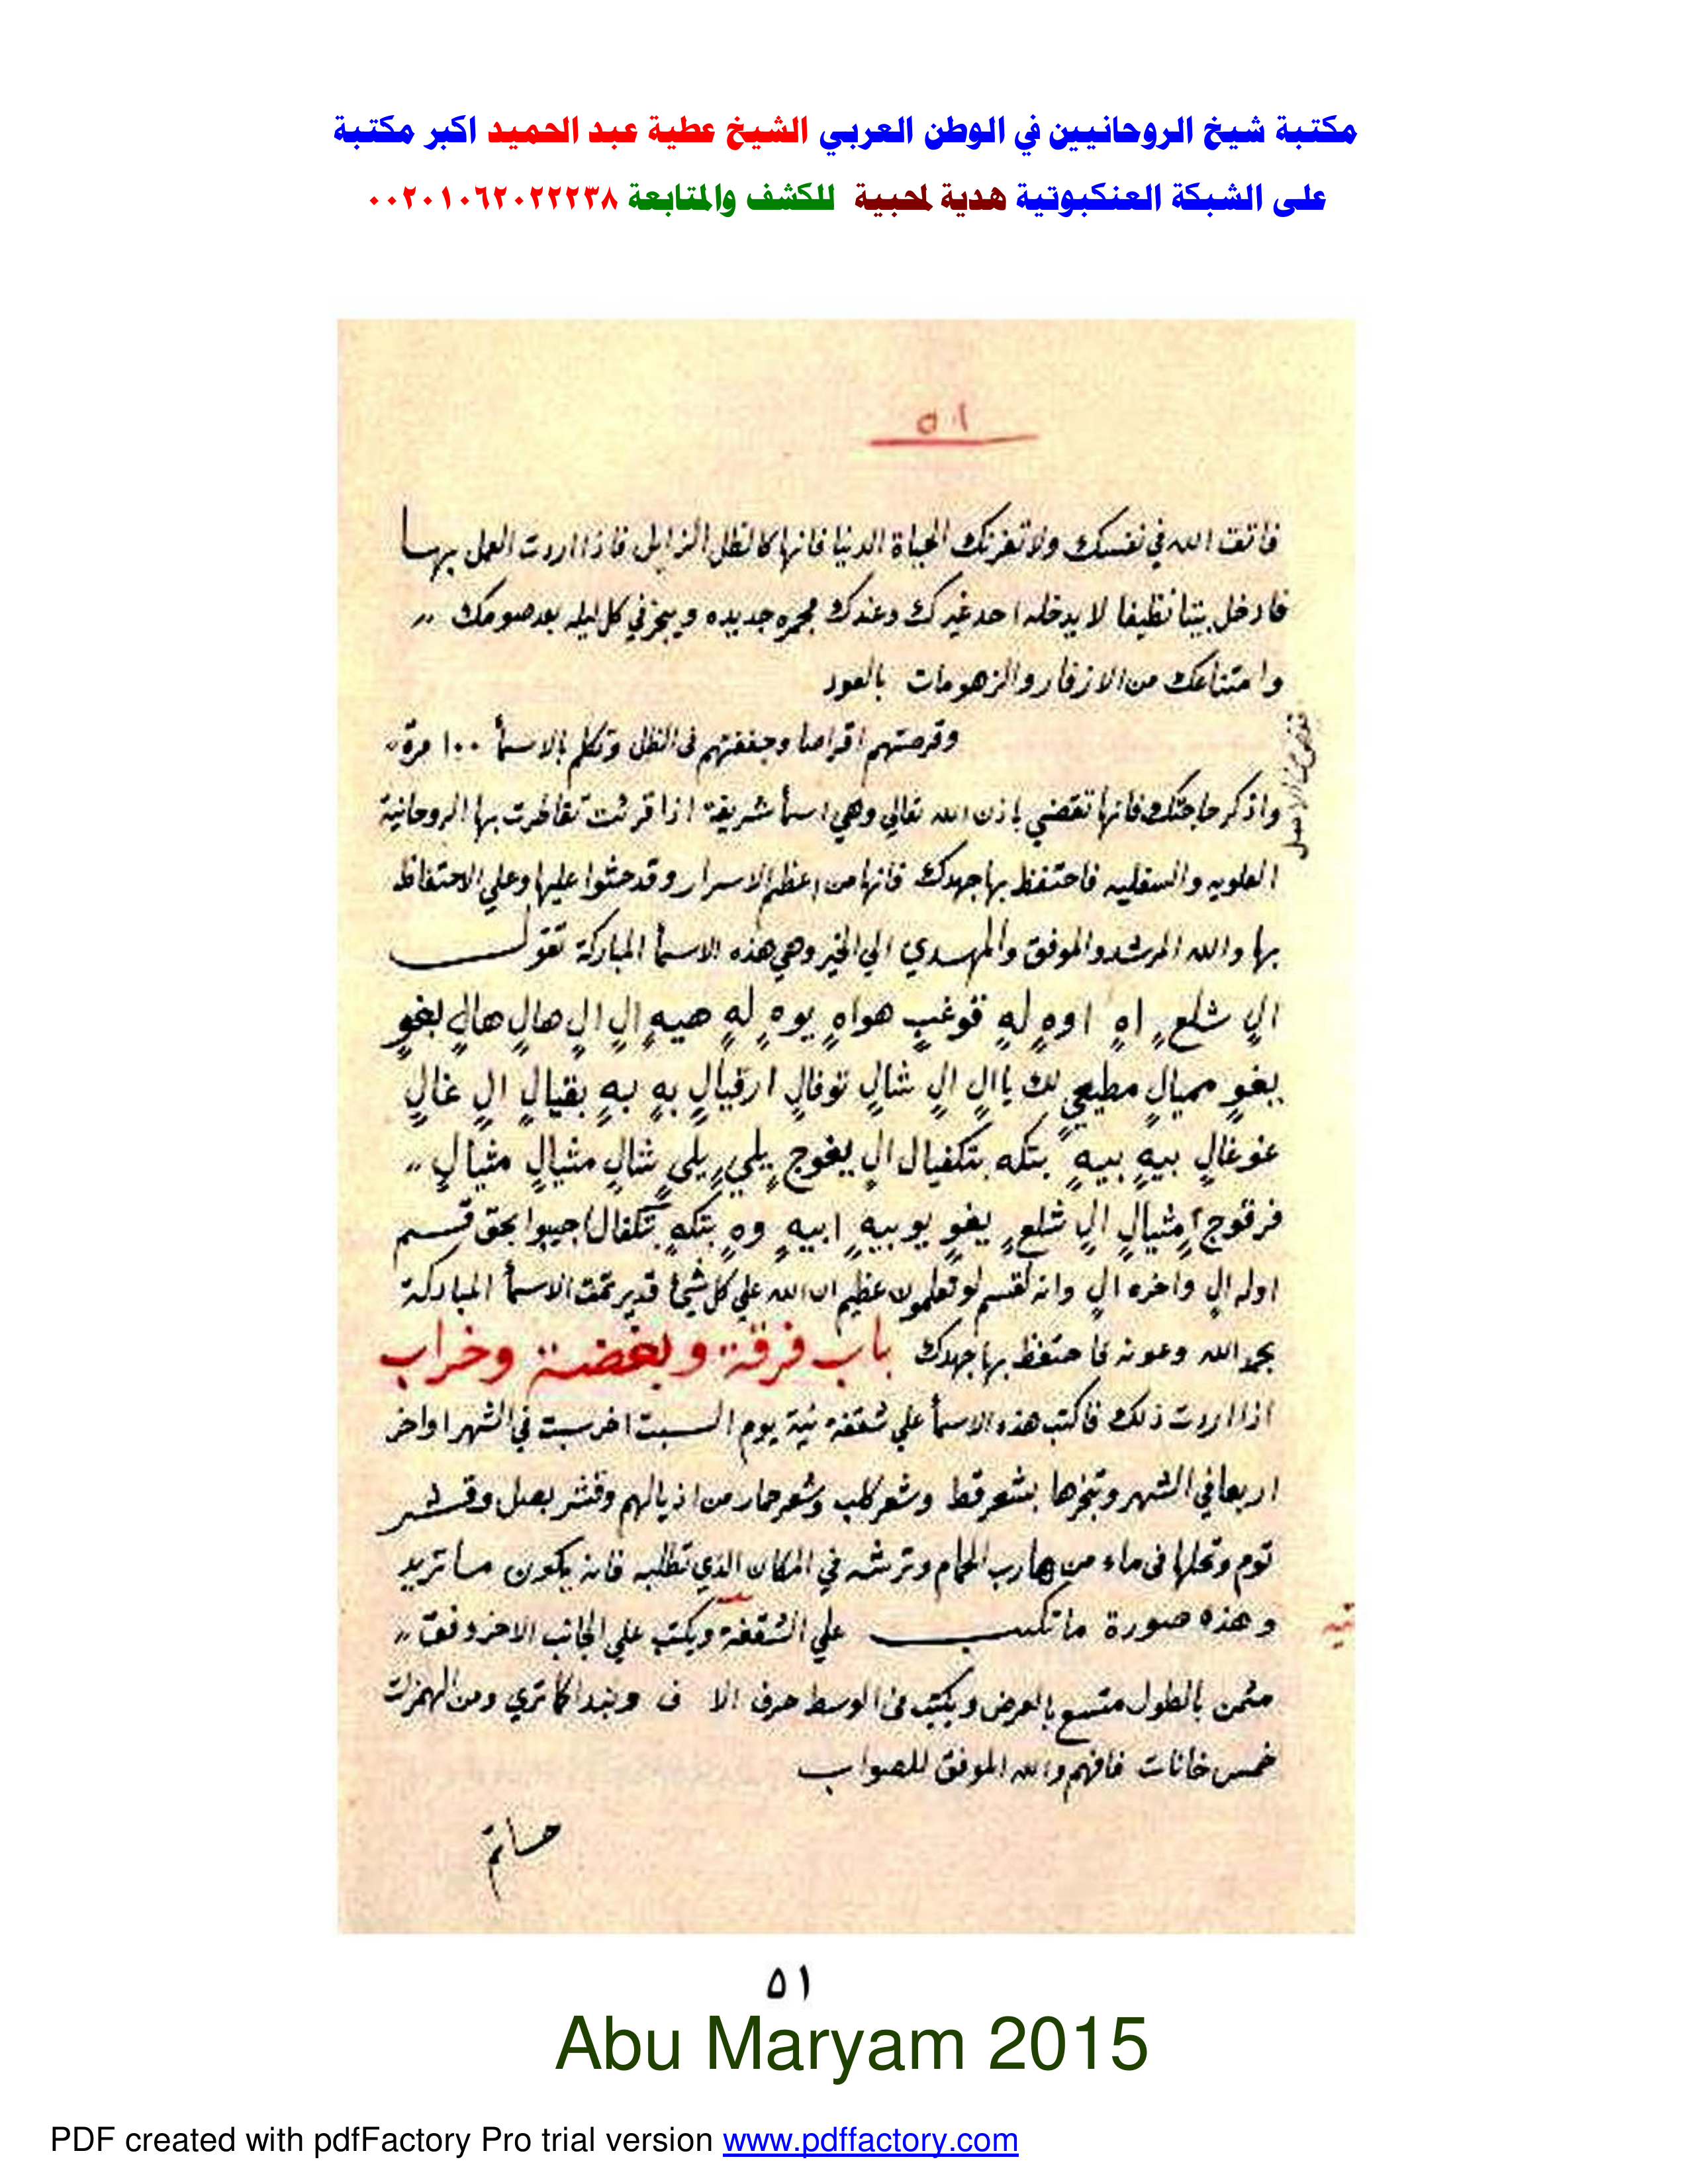 مكتبة شيخ الروحانيين في الوطن العربي الشيخ عطية عبد الحميد اكبر مكتبة
على الشبكة العنكبوتية هدية لمحبيه للكشف والمتابعة ٠٠٢٠١٠٦٢٠٢٢٢٣٨
٥١
فاتق الله في نفسك ولا تغرنك الحياة الدنيا فانها كالظل الزايل فاذا اردت العمل بها
فادخل بيتا نظيفا لا يدخله احد غيرك وعندك مجمره جديده وبخر في كل ليله بعد صومك
وامتناعك من الازفار والزهومات بالعود
وقرصتهم اقراصا وجففتهم فى الظل وتكلم بالاسمأ ١٠٠ مرة
واذكر حاجتك فانها تقضي باذن الله تعالي وهي اسمأ شريفة اذا قرئت تقاطرت بها الروحانية
العلويه والسفليه فاحتفظ بها جهدك فانها من اعظم الاسرار وقد حثوا عليها وعلي الاحتفاظ
بها والله المرشد والموفق والمهدي الي الخير وهي هذه الاسمأ المباركة تقول
ال شلع اه اوه له قوغب هواه يوه له هيه ال ال ال هال هال بغو
بغو ميال مطيعي لك ياال ال شال نوفال ارقيال به به بقيال ال غال
غوغال بيه بيه بتكه بتكفيال ال يغوج يلي يلي شال مشيال مشيال
فرقوج امشيال ال شلع يغو يوبيه ابيه وه بتكه بتكفال اجيبوا بحق قسم
اوله ال واخره ال وانه لقسم لو تعلمون عظيم ان الله علي كل شيأ قدير تمت الاسمأ المباركة
بحمد الله وعونه فاحتفظ بها جهدك باب فرقة وبغضة وخراب
اذا اردت ذلك فاكتب هذه الاسمأ علي شقفة نية يوم السبت اخر سبت في الشهر اواخر
اربعا في الشهر وتبخرها بشعر قط وشعر كلب وشعر حمار من اذيالهم وقشر بصل وقشر
توم وتحلها فى ماء من هارب الحمام وترشه في المكان الذي تطلبه فانه يكون ما تريد
وهذه صورة ما تكتب علي الشقفة ويكتب علي الجانب الاخر وفق
مثمن بالطول متسع بالعرض ويكتب فى الوسط حرف الا ف وتبدا كما تري ومن الهمزات
خمس خانات فافهم والله الموفق للصواب
٥١
Abu Maryam 2015
PDF created with pdfFactory Pro trial version www.pdffactory.com